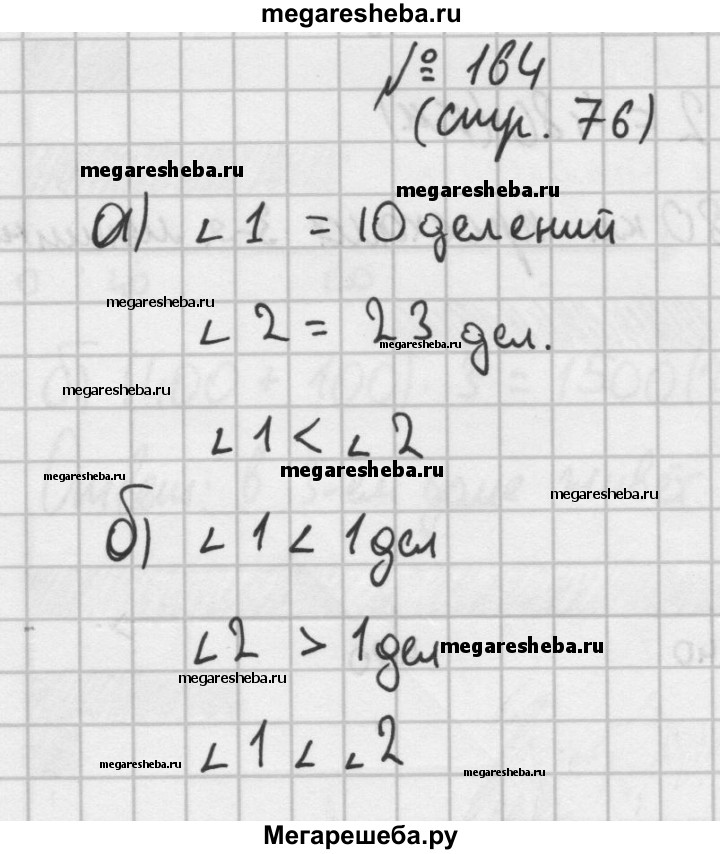 megaresheba.ru
№ 164
(стр. 76)
megaresheba.ru
megaresheba.ru
а) ∟1 = 10 делений
megaresheba.ru
∟2 = 23 дел.
megaresheba.ru
megaresheba.ru
∟1 < ∟2
megaresheba.ru
megaresheba.ru
megaresheba.ru
б) ∟1 < 1 дел
∟2 > 1 дел
megaresheba.ru
megaresheba.ru
∟1 < ∟2
megaresheba.ru
megaresheba.ru
Мегарешеба.ру